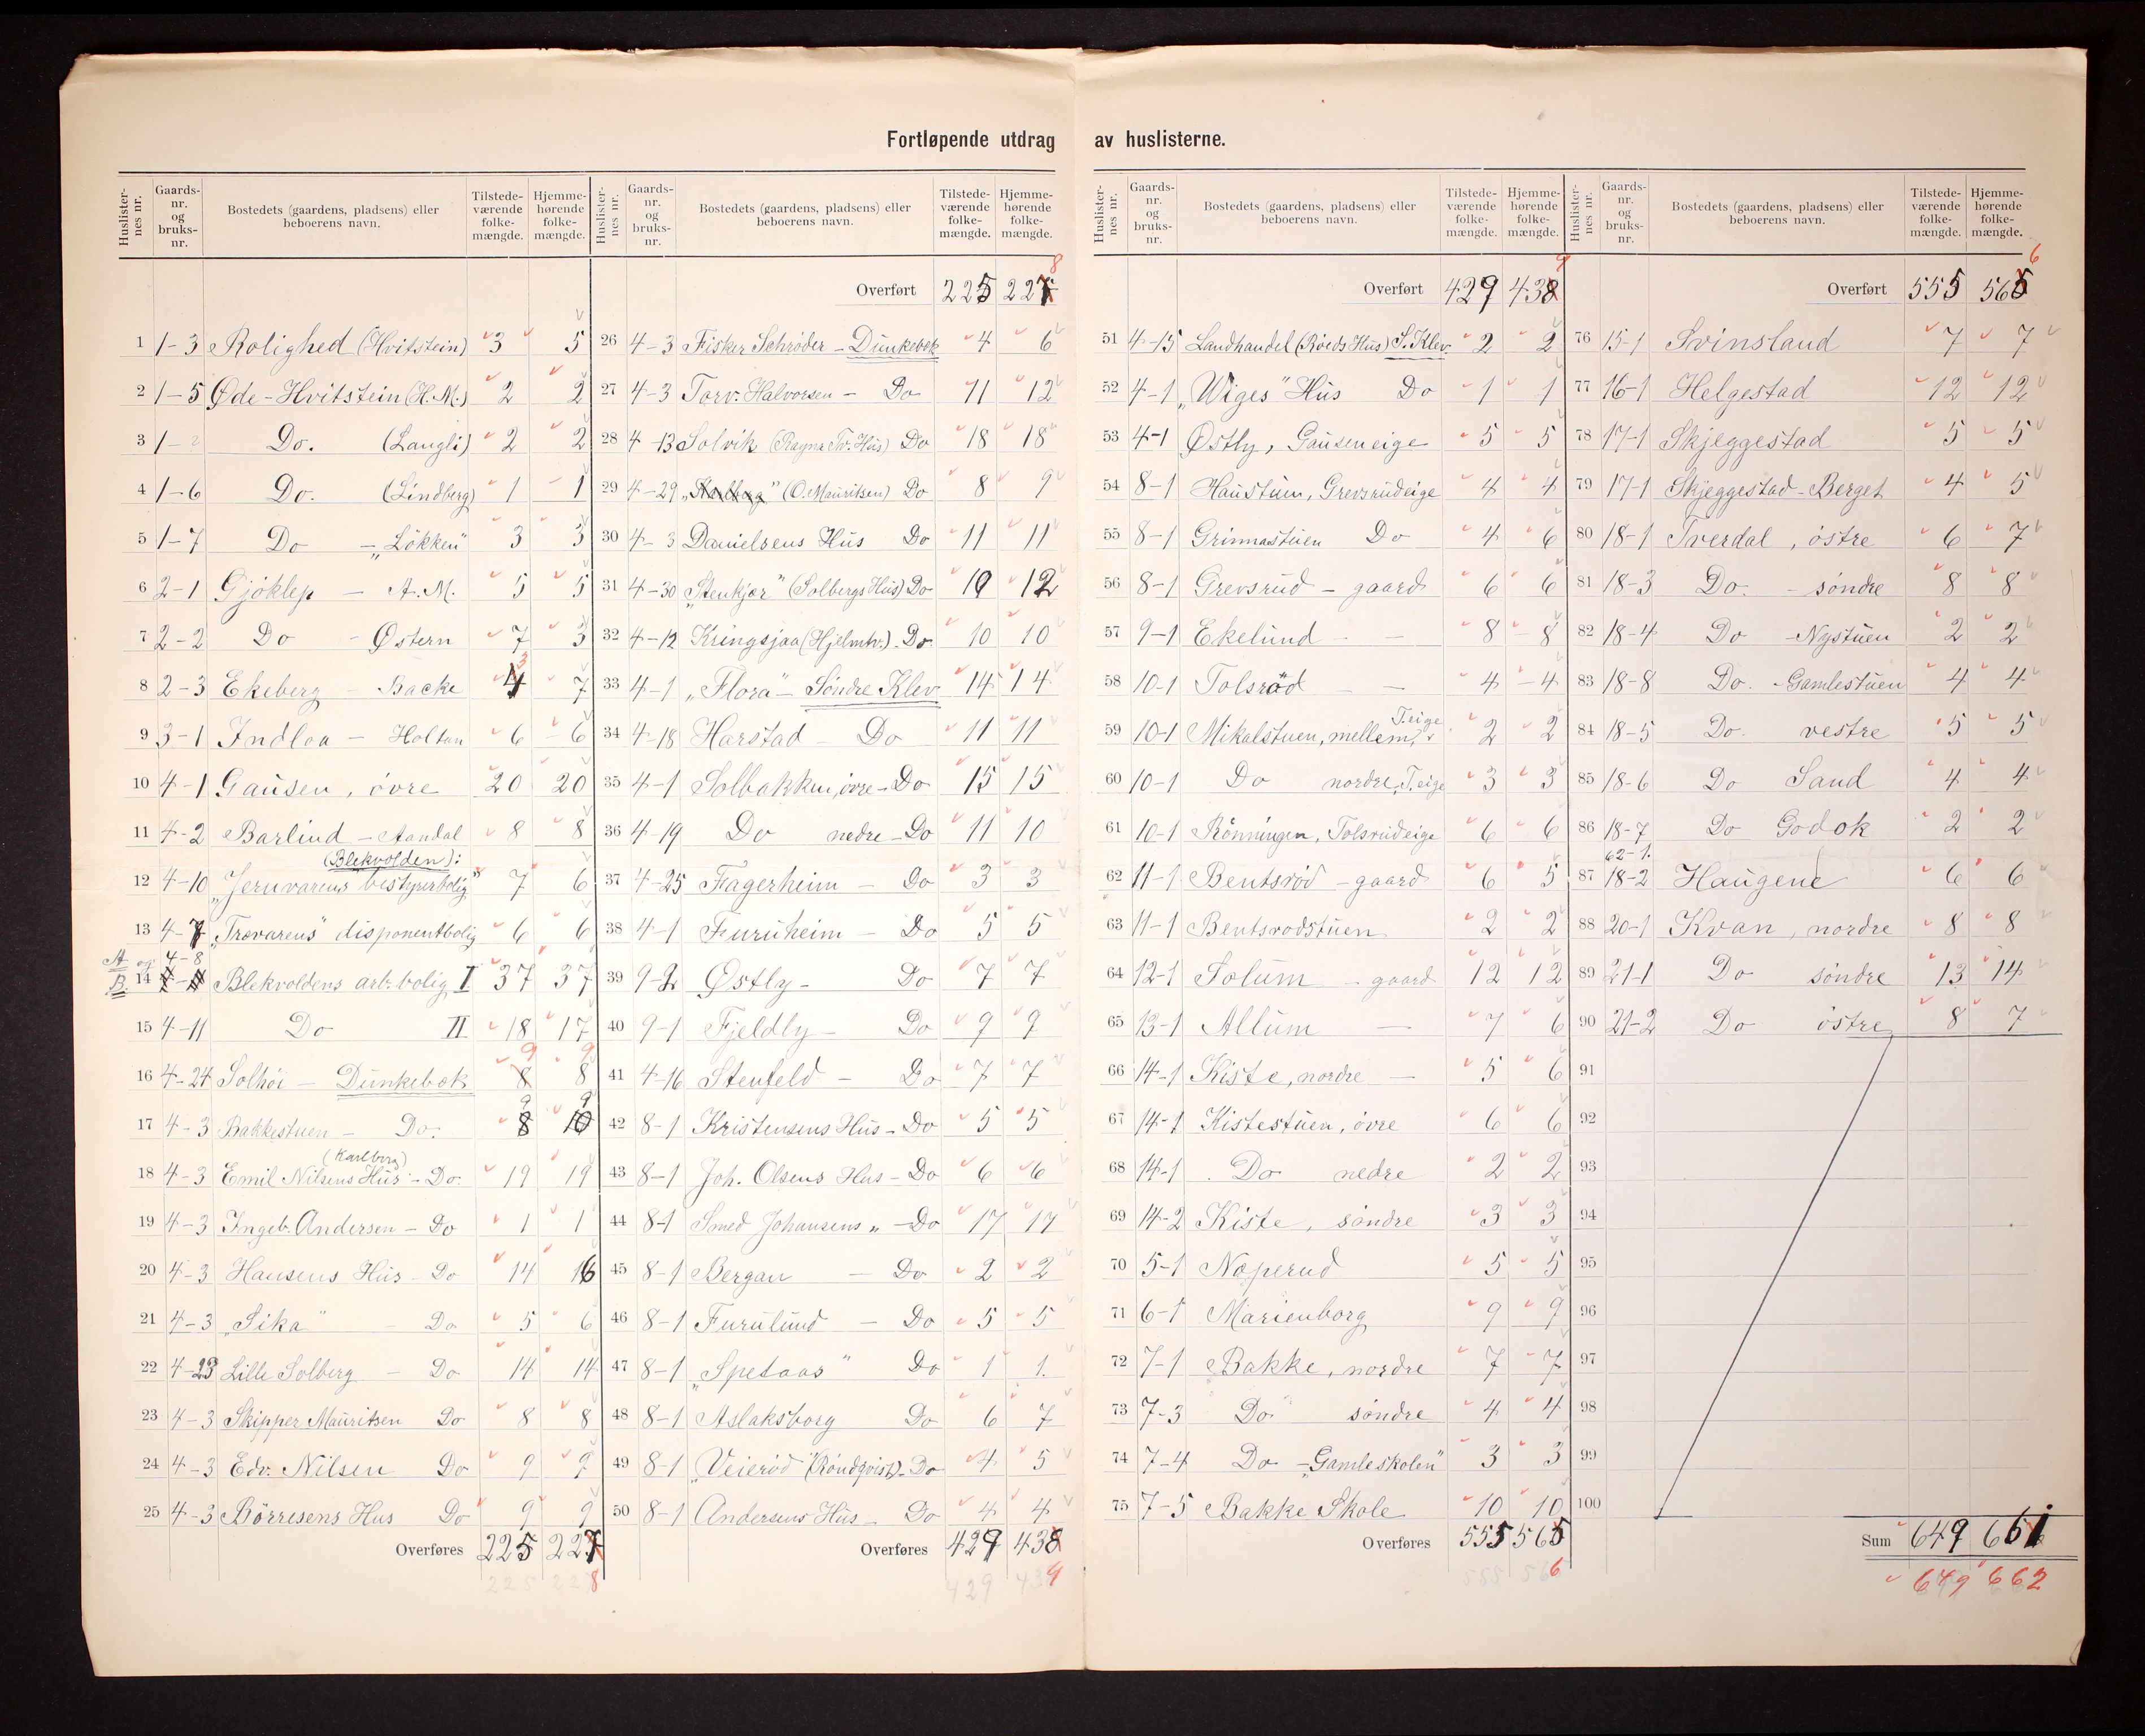 Fortløpende utdrag av huslisterne.
Huslister-nes nr. Gaards-nr. og bruks-nr. Bostedets (gaardens, pladsens) eller beboerens navn. Tilstede-værende folke-mængde. Hjemme-hørende folke-mængde.
1 1-3 Rolighed (Hvitstein) 3 5
2 1-5 Øde-Hvitstein (H.M.) 2 2
3 1-2 Do. (Langli) 2 2
4 1-6 Do. (Lindberg) 1 1
5 1-7 Do - „Løkken" 3 3
6 2-1 Gjøklep - A.M. 5 5
7 2-2 Do - Østern 7 3
8 2-3 Ekeberg - Backe 4 3 7
9 3-1 Indloa - Holtan 6 6
10 4-1 Gausen, øvre 20 20
11 4-2 Barlind - Aandal 8 8
(Blekvolden):
12 4-10 „Jernvarens bestyrerbolig" 7 6
13 4-7 „Trævarens" disponentbolig 6 6
A og B. 14 4-8 Blekvoldens arb. bolig I 37 37
15 4-11 Do II 18 17
16 4-24 Solhöi - Dunkebek 8 9 8 9
17 4-3 Bakkestuen - Do. 8 9 10 9
(Karlberg)
18 4-3 Emil Nilsens Hus - Do. 19 19
19 4-3 Ingeb. Andersen - Do 1 1
20 4-3 Hansens Hus - Do 14 16
21 4-3 „Sika" - Do 5 6
22 4-23 Lille Solberg - Do 14 14
23 4-3 Skipper Mauritsen Do 8 8
24 4-3 Edv. Nilsen Do 9 9
25 4-3 Börresens Hus Do 9 9
Overføres 225 227
225 228
Huslister-nes nr. Gaards-nr. og bruks-nr. Bostedets (gaardens, pladsens) eller beboerens navn. Tilstede-værende folke-mængde. Hjemme-hørende folke-mængde.
Overført 225 227 8
26 4-3 Fisker Schrøder - Dunkebek 4 6
27 4-3 Torv. Halvorsen - Do 11 12
28 4-13 Solvik (Ragna Tv. Hus) Do 18 18
29 4-29 „Karlberg" (O. Mauritsen) Do 8 9
30 4-3 Danielsens Hus Do 11 11
31 4-30 „Stenkjær" (Solbergs Hus) Do 10 12
32 4-12 Kringsjaa (Hjelmtv.) - Do. 10 10
33 4-1 „Flora" - Søndre Klev 14 14
34 4-18 Harstad - Do 11 11
35 4-1 Solbakken, øvre - Do 15 15
36 4-19 Do nedre - Do 11 10
37 4-25 Fagerheim - Do 3 3
38 4-1 Furuheim - Do 5 5
39 9-2 Østly - Do 7 7
40 9-1 Fjeldly - Do 9 9
41 4-16 Stenfeld - Do 7 7
42 8-1 Kristensens Hus - Do 5 5
43 8-1 Joh. Olsens Hus - Do 6 6
44 8-1 Smed Johansens „ - Do 17 17
45 8-1 Bergan - Do 2 2
46 8-1 Furulund - Do 5 5
47 8-1 „Spetaas" Do 1 1.
48 8-1 Aslaksborg Do 6 7
49 8-1 „Veieröd" (Röndqvist) - Do 4 5
50 8-1 Andersens Hus - Do 4 4
Overføres 429 438
429 439
Huslister-nes nr. Gaards-nr. og bruks-nr. Bostedets (gaardens, pladsens) eller beboerens navn. Tilstede-værende folke-mængde. Hjemme-hørende folke-mængde.
Overført 429 438 9
51 4-15 Landhandel (Röeds Hus) S. Klev. 2 2
52 4-1 „Wiges" Hus Do 1 1
53 4-1 Østly, Gauseneige 5 5
54 8-1 Haustuen, Grevsrudeige 4 4
55 8-1 Grinnastuen Do 4 6
56 8-1 Grevsrud - gaard 6 6
57 9-1 Ekelund - - 8 8
58 10-1 Tolsrød - - 4 4
59 10-1 Mikalstuen, mellem, T.eige 2 2
60 10-1 Do nordre, T.eige 3 3
61 10-1 Rönningen, Tolsrudeige 6 6
62 11-1 Bentsröd - gaard 6 5
63 11-1 Bentsrodstuen 2 2
64 12-1 Solum - gaard 12 12
65 13-1 Allum - 7 6
66 14-1 Kiste, nordre - 5 6
67 14-1 Kistestuen, övre 6 6
68 14-1 Do nedre 2 2
69 14-2 Kiste, söndre 3 3
70 5-1 Noperud 5 5
71 6-1 Marienborg 9 9
72 7-1 Bakke, nordre 7 7
73 7-3 Do " söndre 4 4
74 7-4 Do - „Gamleskolen" 3 3
75 7-5 Bakke Skole 10 10
Overføres 555 565
555 566
Huslister-nes nr. Gaards-nr. og bruks-nr. Bostedets (gaardens, pladsens) eller beboerens navn. Tilstede-værende folke-mængde. Hjemme-hørende folke-mængde.
Overført 555 565 6
76 15-1 Svinsland 7 7
77 16-1 Helgestad 12 12
78 17-1 Skjeggestad 5 5
79 17-1 Skjeggestad - Berget 4 5
80 18-1 Tverdal, östre 6 7
81 18-3 Do. - söndre 8 8
82 18-4 Do - Nystuen 2 2
83 18-8 Do. - Gamlestuen 4 4
84 18-5 Do. vestre 5 5
85 18-6 Do Sand 4 4
86 18-7 Do Godok 2 2
62-1.
87 18-2 Haugene 6 6
88 20-1 Kvan, nordre 8 8
89 21-1 Do söndre 13 14
90 21-2 Do östre 8 7
91
92
93
94
95
96
97
98
99
100
Sum 649 661
649 662